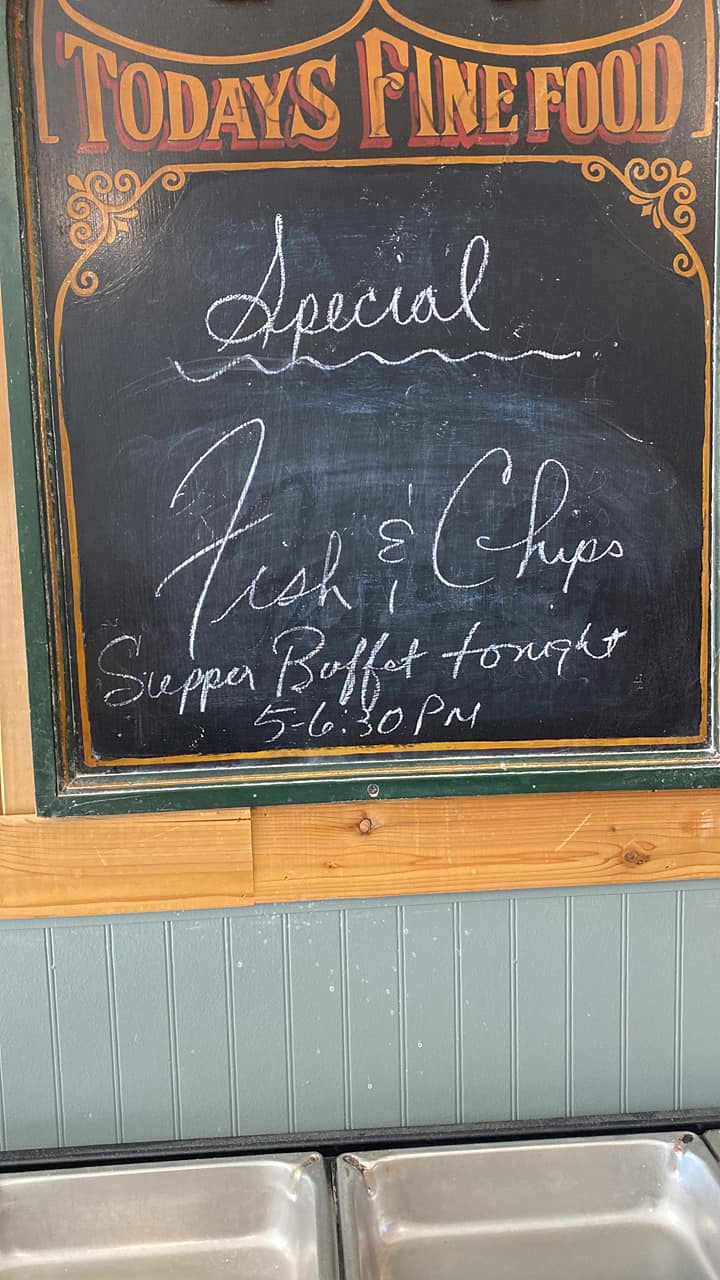 TODAYS FINE FOOD
Special
Fish & Chips
Supper Buffet tonight
5-6:30 PM